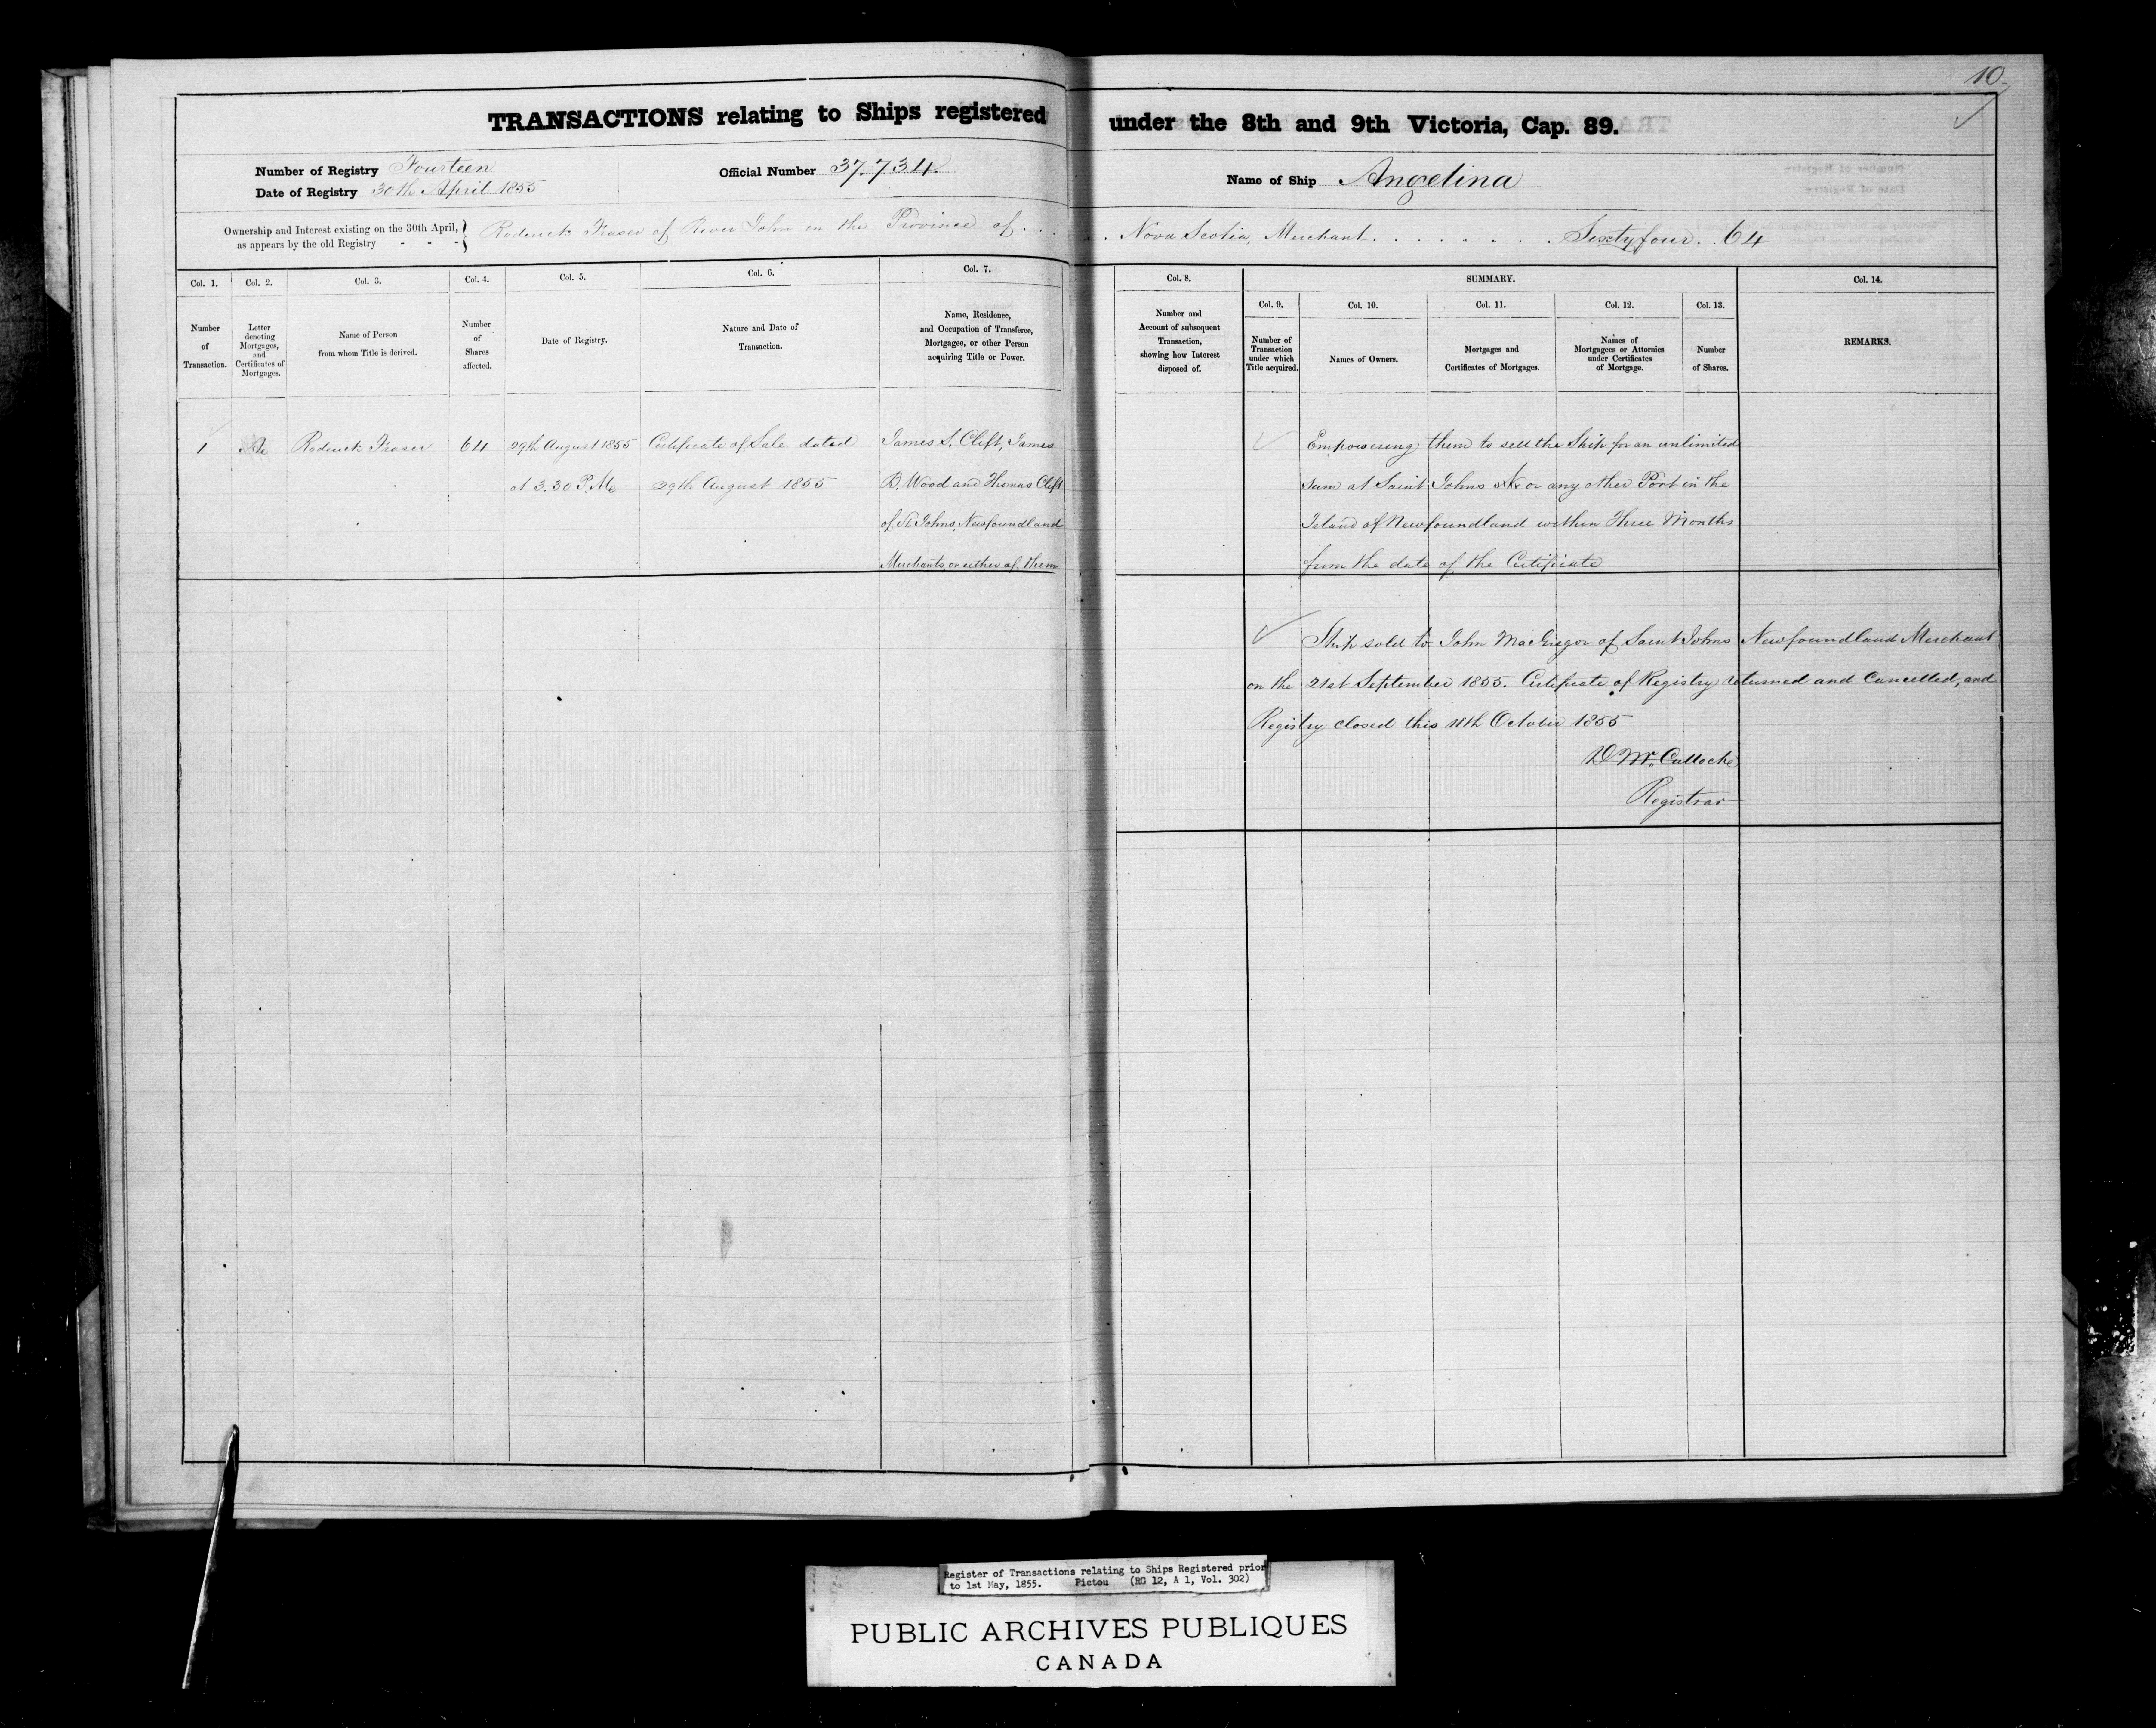 10.
TRANSACTIONS relating to Ships registered under the 8th and 9th Victoria, Cap. 89.
Number of Registry Fourteen
Date of Registry 30th April 1855
Official Number 37.734.
Name of Ship Angelina
Ownership and Interest existing on the 30th April, as appears by the old Registry - - - } Roderick Fraser of River John in the Province of . . . . . Nova Scotia, Merchant . . . . . . . . Sixty four . . 64
Col. 1.
Number
of
Transaction.
Col. 2.
Letter
denoting
Mortgages,
and
Certificates of
Mortgages.
Col. 3.
Name of Person
from whom Title is derived.
Col. 4.
Number
of
Shares
affected.
Col. 5.
Date of Registry.
Col. 6.
Nature and Date of
Transaction.
Col. 7.
Name, Residence,
and Occupation of Transferee,
Mortgagee, or other Person
acquiring Title or Power.
Col. 8.
Number and
Account of subsequent
Transaction,
showing how Interest
disposed of.
SUMMARY.
Col. 9.
Number of
Transaction
under which
Title acquired.
Col. 10.
Names of Owners.
Col. 11.
Mortgages and
Certificates of Mortgages.
Col. 12.
Names of
Mortgagees or Attornies
under Certificates
of Mortgage.
Col. 13.
Number
of Shares.
Col. 14.
REMARKS.
1
Roderick Fraser
64
29th August 1855
at 3.30 P.M.
Certificate of Sale dated
29th August 1855
James S. Clift, James
B. Wood and Thomas Clift
of St Johns, Newfoundland
Merchants, or either of them
Empowering them to sell the Ship for an unlimited
sum at Saint Johns or any other Port in the
Island of Newfoundland within Three Months
from the date of the Certificate
Ship sold to John MacGregor of Saint Johns Newfoundland Merchant
on the 21st September 1855. Certificate of Registry returned and Cancelled, and
Registry closed this 11th October 1855
D McCulloch
Registrar
Register of Transactions relating to Ships Registered prior
to 1st May, 1855. Pictou (RG 12, A 1, Vol. 302)
PUBLIC ARCHIVES PUBLIQUES
CANADA